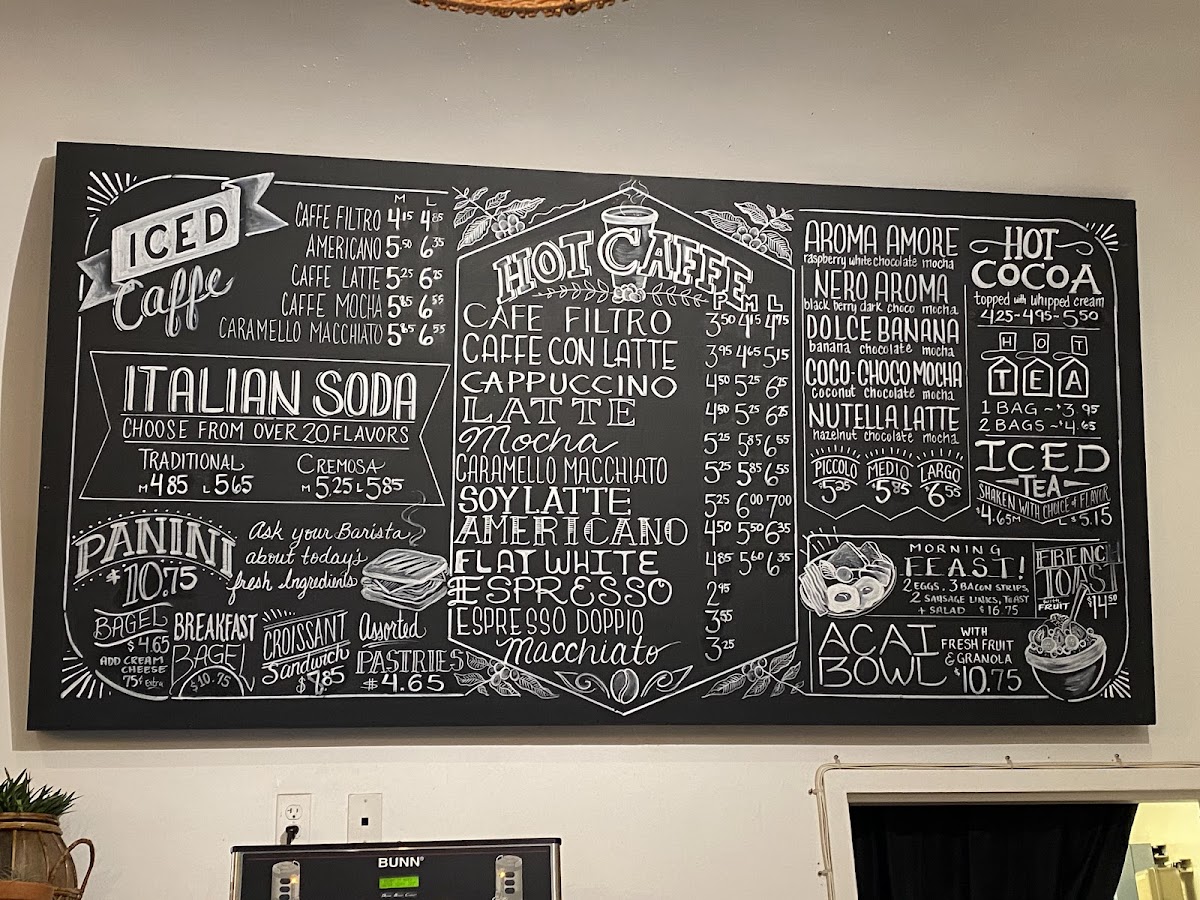 ICED
Caffe
M L
CAFFE FILTRO 4.15 4.85
AMERICANO 5.50 6.35
CAFFE LATTE 5.25 6.25
CAFFE MOCHA 5.85 6.55
CARAMELLO MACCHIATO 5.85 6.55
ITALIAN SODA
CHOOSE FROM OVER 20 FLAVORS
TRADITIONAL CREMOSA
M 4.85 L 5.65 M 5.25 L 5.85
PANINI
$10.75
Ask your Barista
about today's
fresh Ingredients
BAGEL
$4.65
ADD CREAM
CHEESE
75¢ Extra
BREAKFAST
BAGEL
$10.75
CROISSANT
Sandwich
$7.85
Assorted
PASTRIES
$4.65
HOT CAFFE
P M L
CAFE FILTRO 3.50 4.15 4.75
CAFFE CON LATTE 3.95 4.65 5.15
CAPPUCCINO 4.50 5.25 6.25
LATTE 4.50 5.25 6.25
Mocha 5.25 5.85 6.55
CARAMELLO MACCHIATO 5.25 5.85 6.55
SOY LATTE 5.25 6.00 7.00
AMERICANO 4.50 5.50 6.35
FLAT WHITE 4.85 5.60 6.35
ESPRESSO 2.95
ESPRESSO DOPPIO 3.55
Macchiato 3.25
AROMA AMORE
raspberry white chocolate mocha
NERO AROMA
black berry dark choco mocha
DOLCE BANANA
banana chocolate mocha
COCO-CHOCO MOCHA
coconut chocolate mocha
NUTELLA LATTE
hazelnut chocolate mocha
PICCOLO MEDIO LARGO
5.25 5.95 6.55
HOT
COCOA
topped with whipped cream
4.25-4.95-5.50
HOT
TEA
1 BAG ~ $3.95
2 BAGS ~ $4.65
ICED
TEA
SHAKEN WITH CHOICE OF FLAVOR
$4.65 M L $5.15
MORNING
FEAST!
2 EGGS, 3 BACON STRIPS,
2 SAUSAGE LINKS, TOAST
+ SALAD $16.75
FRENCH
TOAST
with
FRUIT $14.50
ACAI
BOWL
WITH
FRESH FRUIT
& GRANOLA
$10.75
BUNN®